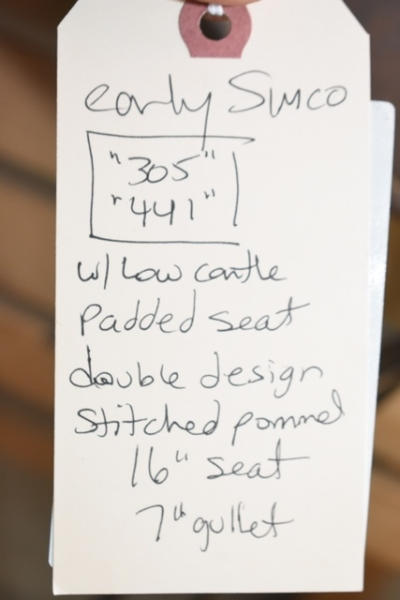 early Simco
"305"
"441"
w/ Low cantle
Padded seat
double design
Stitched pommel
16" seat
7" gullet